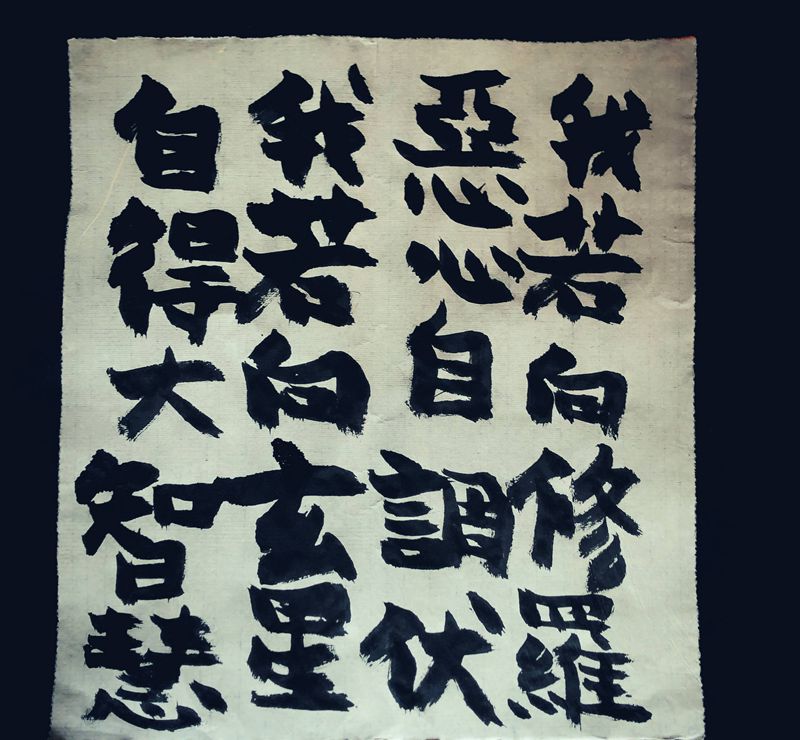 我若向修羅
惡心自調伏
我若向畜生
自得大智慧